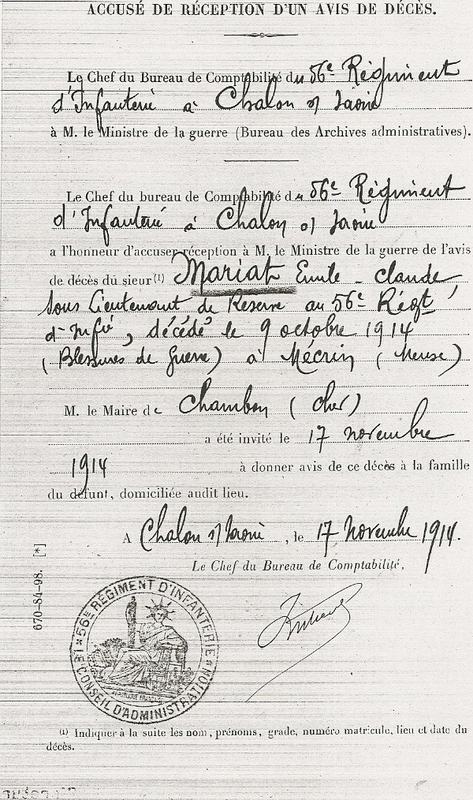 ACCUSÉ DE RÉCEPTION D'UN AVIS DE DÉCÈS.
Le Chef du Bureau de Comptabilité du 56e Régiment
d'Infanterie à Chalon s/ Saône
à M. le Ministre de la guerre (Bureau des Archives administratives).
Le Chef du bureau de Comptabilité du 56e Régiment
d'Infanterie à Chalon s/ Saône
a l'honneur d'accuser réception à M. le Ministre de la guerre de l'avis
de décès du sieur(1) Mariat Emile - claude
Sous Lieutenant de Réserve au 56e Régt
d'Infie, décédé le 9 octobre 1914
(Blessures de Guerre) à Mécrin (Meuse)
M. le Maire de Chambon (Cher)
a été invité le 17 novembre
1914 à donner avis de ce décès à la famille
du défunt, domiciliée audit lieu.
A Chalon s/ Saône, le 17 Novembre 1914.
Le Chef du Bureau de Comptabilité,
670-84-98. [*]
56E RÉGIMENT D'INFANTERIE
CONSEIL D'ADMINISTRATION
(1) Indiquer à la suite les nom, prénoms, grade, numéro matricule, lieu et date du
décès.